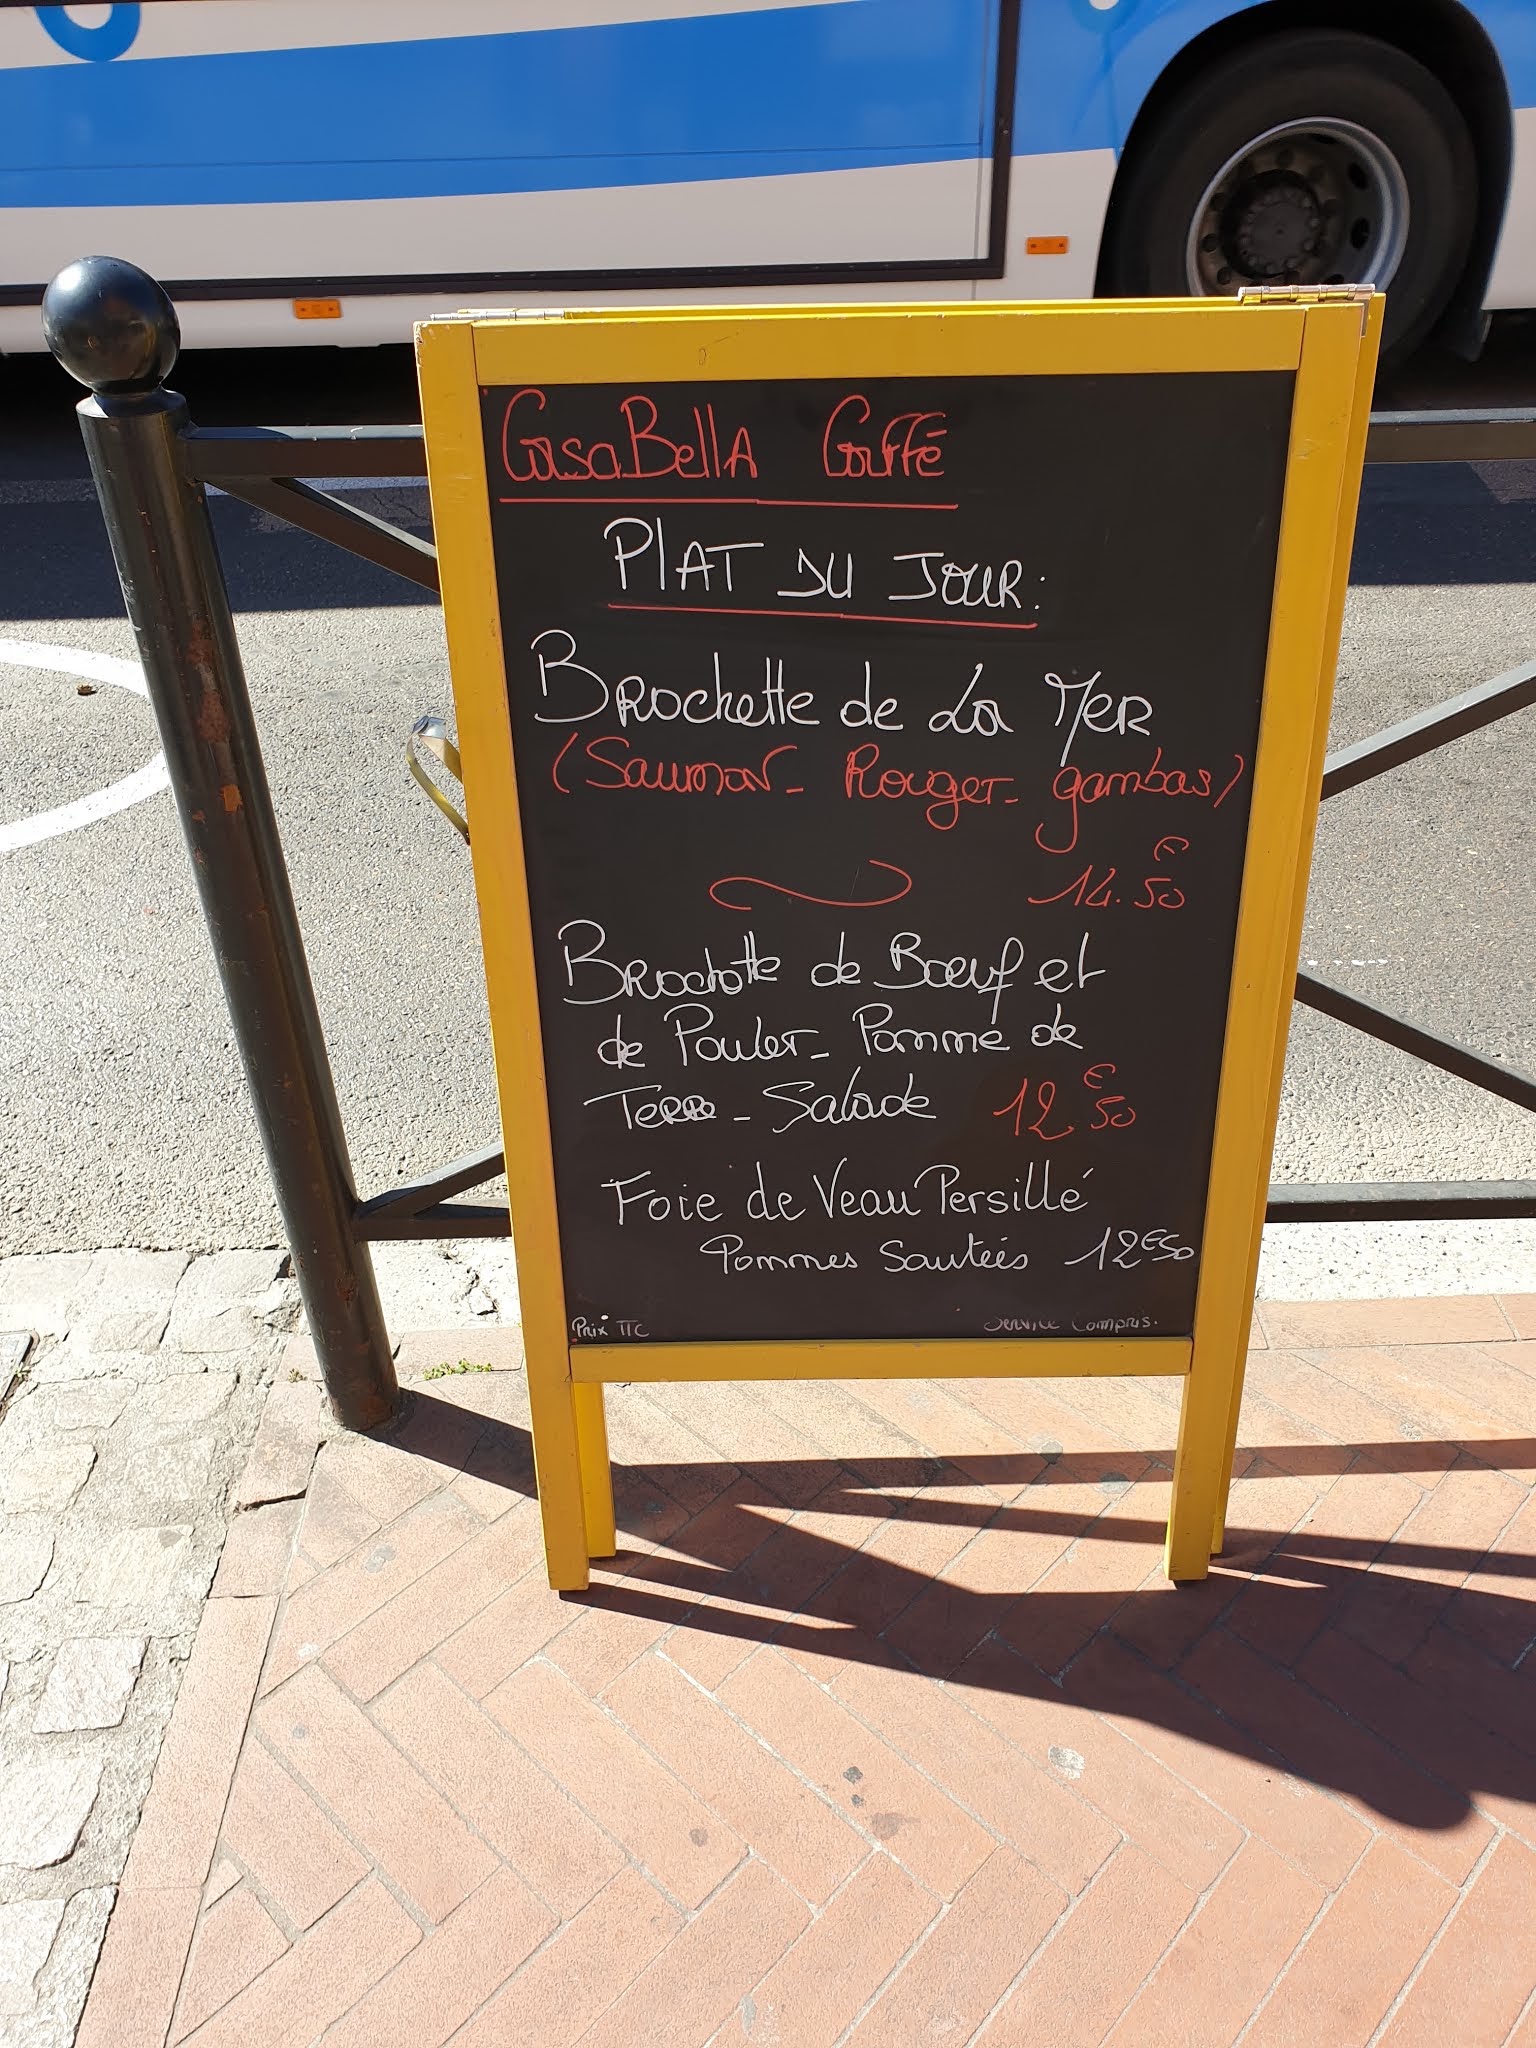 CasaBellA Caffé
PlAT DU JOUR:
BRochette de La MeR
(Saumon - Rouget - gambas)
14.€50
BRochette de Boeuf et
de Poulet - Pomme de
Terre - Salade 12.€50
Foie de Veau Persillé
Pommes Sautées 12€50
Prix TTC Service Compris.